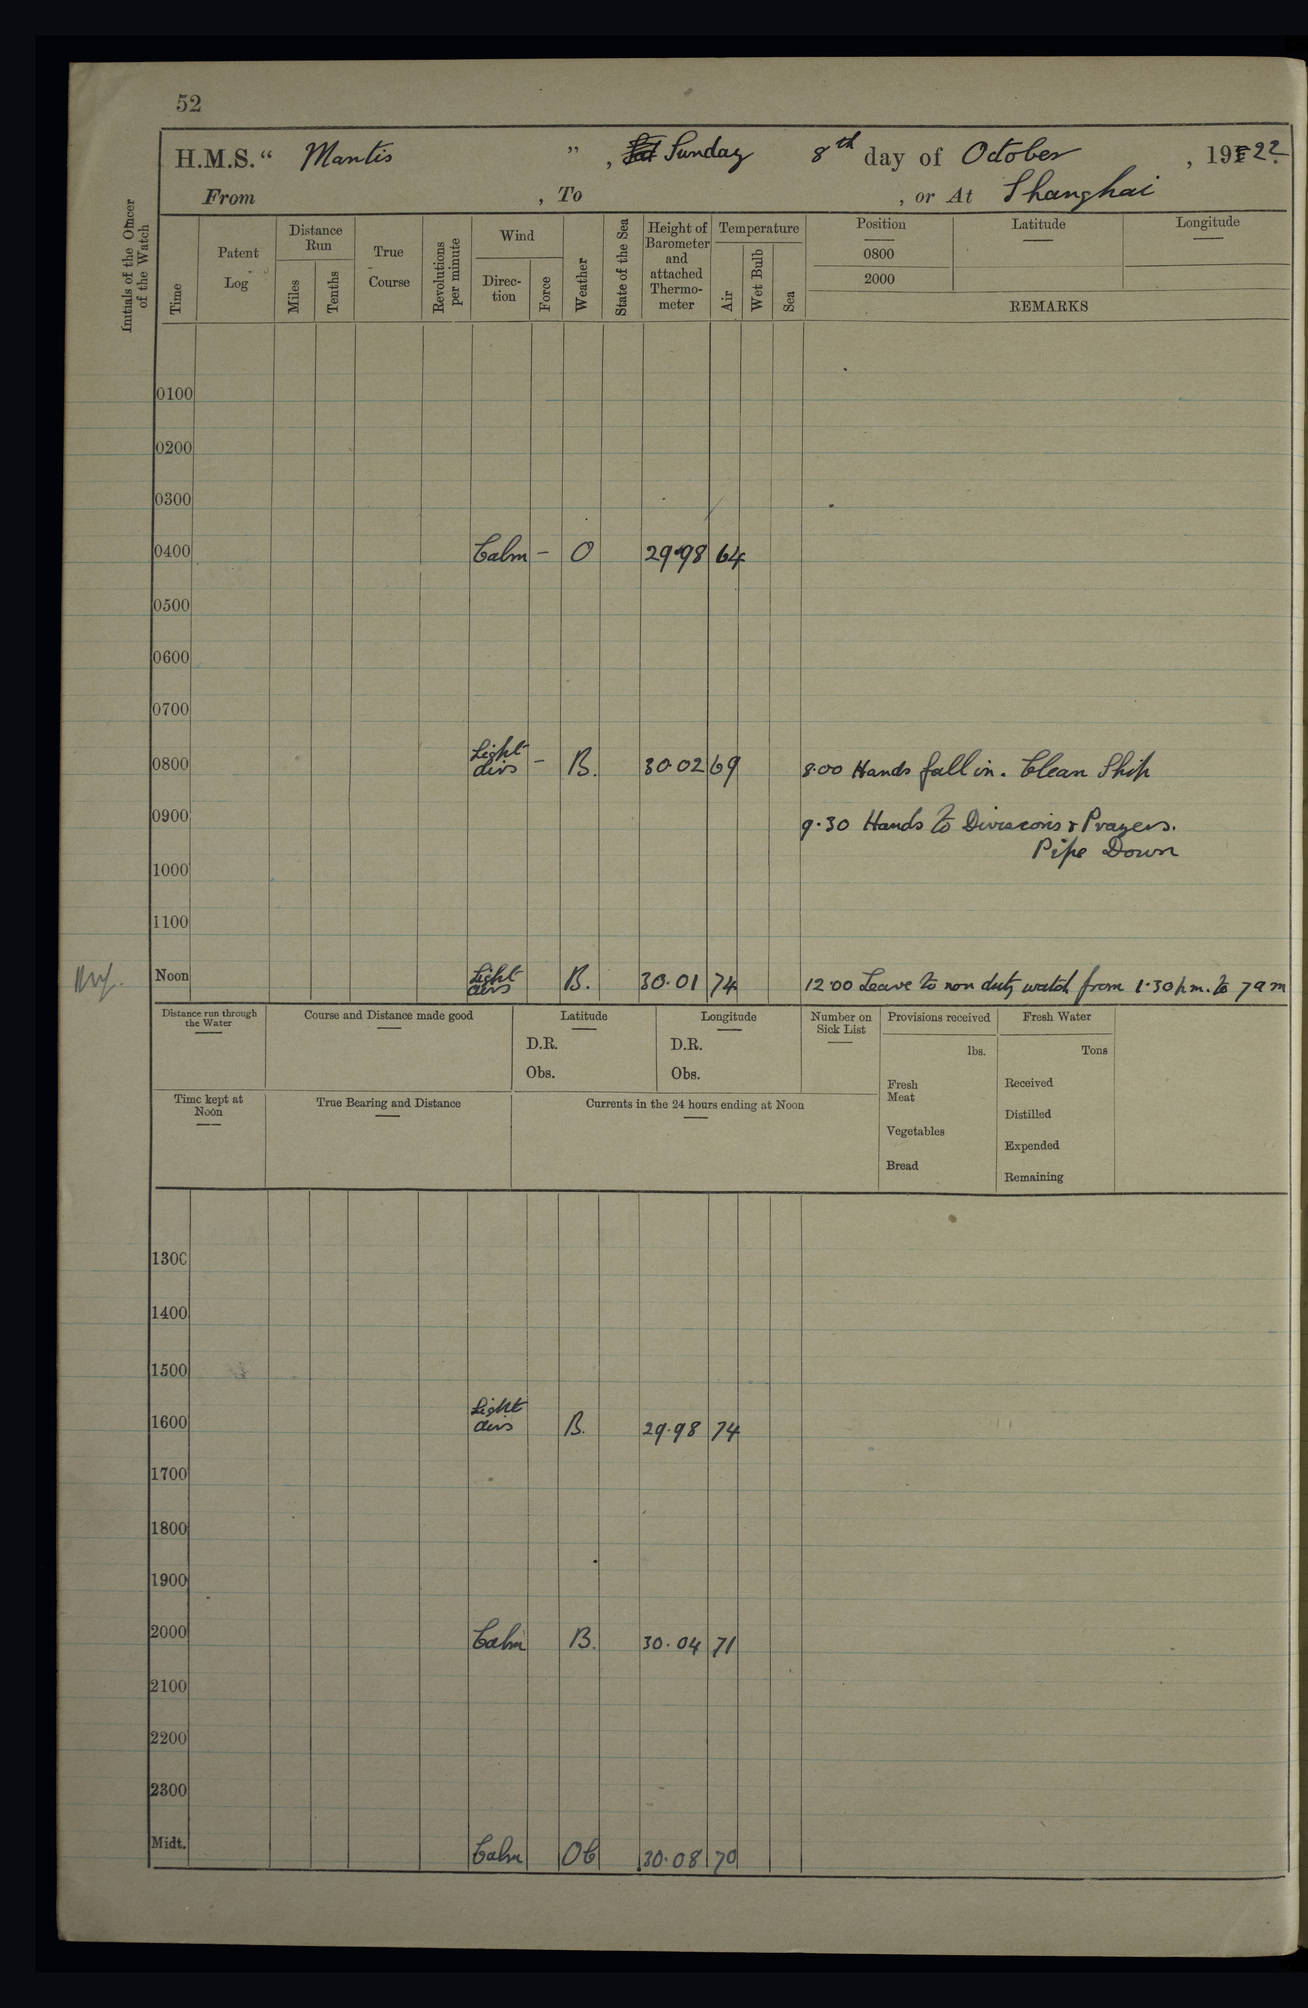 52
H.M.S. " Mantis " , Sunday 8th day of October , 1922
From , To , or At Shanghai
Initials of the Officer of the Watch
Time
Patent Log
Distance Run
Miles
Tenths
True Course
Revolutions per minute
Wind
Direc-tion
Force
Weather
State of the Sea
Height of Barometer and attached Thermo-meter
Temperature
Air
Wet Bulb
Sea
Position
0800
2000
Latitude
Longitude
REMARKS
0100
0200
0300
0400 Calm – O 29.98 64
0500
0600
0700
0800 Light airs – B. 30.02 69 8.00 Hands fall in. Clean Ship
0900 9.30 Hands to Divisions & Prayers.
Pipe Down
1000
1100
Noon Light airs B. 30.01 74 12.00 Leave to non duty watch from 1.30 p.m. to 7 a m
Distance run through the Water
Course and Distance made good
Latitude
D.R.
Obs.
Longitude
D.R.
Obs.
Number on Sick List
Provisions received
lbs.
Fresh Meat
Vegetables
Bread
Fresh Water
Tons
Received
Distilled
Expended
Remaining
Time kept at Noon
True Bearing and Distance
Currents in the 24 hours ending at Noon
1300
1400
1500
1600 Light airs B. 29.98 74
1700
1800
1900
2000 Calm B. 30.04 71
2100
2200
2300
Midt. Calm OC 30.08 70